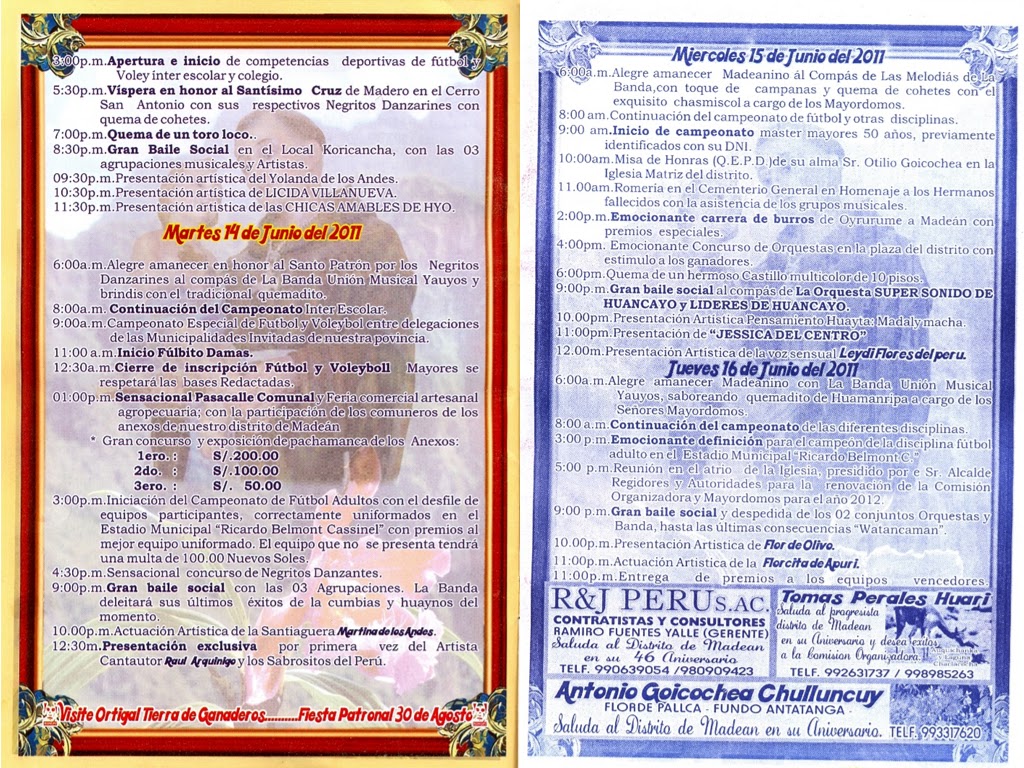 3:00p.m.Apertura e inicio de competencias deportivas de fútbol y
Voley inter escolar y colegio.
5:30p.m.Víspera en honor al Santísimo Cruz de Madero en el Cerro
San Antonio con sus respectivos Negritos Danzarines con
quema de cohetes.
7:00p.m.Quema de un toro loco..
8:30p.m.Gran Baile Social en el Local Koricancha, con las 03
agrupaciones musicales y Artistas.
09:30p.m.Presentación artística del Yolanda de los Andes.
10:30p.m.Presentación artística de LICIDA VILLANUEVA.
11:30p.m.Presentación artística de las CHICAS AMABLES DE HYO.
Martes 14 de Junio del 2011
6:00a.m.Alegre amanecer en honor al Santo Patrón por los Negritos
Danzarines al compás de La Banda Unión Musical Yauyos y
brindis con el tradicional quemadito.
8:00a.m. Continuación del Campeonato Inter Escolar.
9:00a.m.Campeonato Especial de Futbol y Vóleybol entre delegaciones
de las Municipalidades Invitadas de nuestra povincia.
11:00 a.m.Inicio Fúlbito Damas.
12:30a.m.Cierre de inscripción Fútbol y Voleyboll Mayores se
respetará las bases Redactadas.
01:00p.m.Sensacional Pasacalle Comunal y Feria comercial artesanal
agropecuaria; con la participación de los comuneros de los
anexos de nuestro distrito de Madeán
* Gran concurso y exposición de pachamanca de los Anexos:
1ero. : S/.200.00
2do. : S/.100.00
3ero. : S/. 50.00
3:00p.m.Iniciación del Campeonato de Fútbol Adultos con el desfile de
equipos participantes, correctamente uniformados en el
Estadio Municipal "Ricardo Belmont Cassinel" con premios al
mejor equipo uniformado. El equipo que no se presenta tendrá
una multa de 100.00 Nuevos Soles.
4:30p.m.Sensacional concurso de Negritos Danzantes.
9:00p.m.Gran baile social con las 03 Agrupaciones. La Banda
deleitará sus últimos éxitos de la cumbias y huaynos del
momento.
10.00p.m.Actuación Artística de la Santiaguera Martina de los Andes.
12:30m.Presentación exclusiva por primera vez del Artista
Cantautor Raul Arquinigo y los Sabrositos del Perú.
Visite Ortigal Tierra de Ganaderos..........Fiesta Patronal 30 de Agosto
Miercoles 15 de Junio del 2011
6:00a.m.Alegre amanecer Madeanino ál Compás de Las Melodiás de La
Banda,con toque de campanas y quema de cohetes con el
exquisito chasmiscol a cargo de los Mayordomos.
8:00 am.Continuación del campeonato de fútbol y otras disciplinas.
9:00 am.Inicio de campeonato master mayores 50 años, previamente
identificados con su DNI.
10:00am.Misa de Honras (Q.E.P.D.)de su alma Sr. Otilio Goicochea en la
Iglesia Matriz del distrito.
11.00am.Romería en el Cementerio General en Homenaje a los Hermanos
fallecidos con la asistencia de los grupos musicales.
2:00p.m.Emocionante carrera de burros de Oyrurume a Madeán con
premios especiales.
4:00pm. Emocionante Concurso de Orquestas en la plaza del distrito con
estimulo a los ganadores.
6:00pm.Quema de un hermoso Castillo multicolor de 10 pisos.
9:00p.m.Gran baile social al compás de La Orquesta SUPER SONIDO DE
HUANCAYO y LIDERES DE HUANCAYO.
10.00pm.Presentación Artística Pensamiento Huayta: Madalymacha.
11:00pm.Presentación de "JESSICA DEL CENTRO"
12.00m.Presentación Artistica de la voz sensual Leydi Flores del peru.
Jueves 16 de Junio del 2011
6:00a.m.Alegre amanecer Madeanino con La Banda Unión Musical
Yauyos, saboreando quemadito de Huamanripa a cargo de los
Señores Mayordomos.
8:00 a.m. Continuación del campeonato de las diferentes disciplinas.
3:00 p.m. Emocionante definición para el campeón de la disciplina fútbol
adulto en el Estadio Municipal "Ricardo Belmont C."
5:00 p.m.Reunión en el atrio de la Iglesia, presidido por e Sr. Alcalde
Regidores y Autoridades para la renovación de la Comisión
Organizadora y Mayordomos para el año 2012.
9:00 p.m.Gran baile social y despedida de los 02 conjuntos Orquestas y
Banda, hasta las últimas consecuencias "Watancaman".
10.00p.m.Presentación Artistica de Flor de Olivo.
11:00p.m.Actuación Artistica de la Florcita de Apuri.
11:00p.m.Entrega de premios a los equipos vencedores.
R&J PERU S.AC.
CONTRATISTAS Y CONSULTORES
RAMIRO FUENTES YALLE (GERENTE)
Saluda al Distrito de Madean
en su 46 Aniversario
TELF. 990639054 /980909423
Tomas Perales Huari
Saluda al progresista
distrito de Madean
en su Aniversario y desea exitos
a la Comision Organizadora.
TELF. 992631737 / 998985263
Antonio Goicochea Chulluncuy
FLORDE PALLCA - FUNDO ANTATANGA -
Saluda al Distrito de Madean en su Aniversario. TELF. 993317620